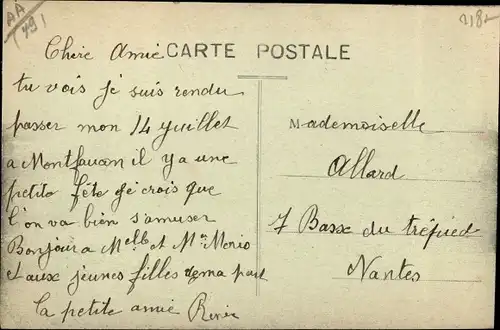 AA
(49)
218-
CARTE POSTALE
Chère Amie
tu vois je suis rendu
passer mon 14 juillet
a Montfaucon il y a une
petite fête je crois que
l'on va bien s'amuser
Bonjour a Melle et Me
et aux jeunes filles de ma part
la petite amie
Mademoiselle
Allard
7 Basse du trépied
Nantes